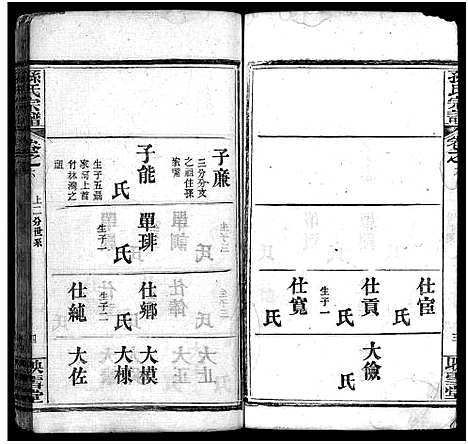 孫氏宗譜
卷之六
三
映雪堂
仕宦
氏
仕貢
氏
生子一
仕寬
氏
大儉
氏
子廉
三分分支
之祖住孫
家嘴
子能
氏
生子五墓
家河上首
竹林灣之
祖
單琲
氏
生子二
仕鄉
氏
生子二
仕純
生子一
大模
大棟
大佐
孫氏宗譜
卷之六
上二分世系
四
映雪堂